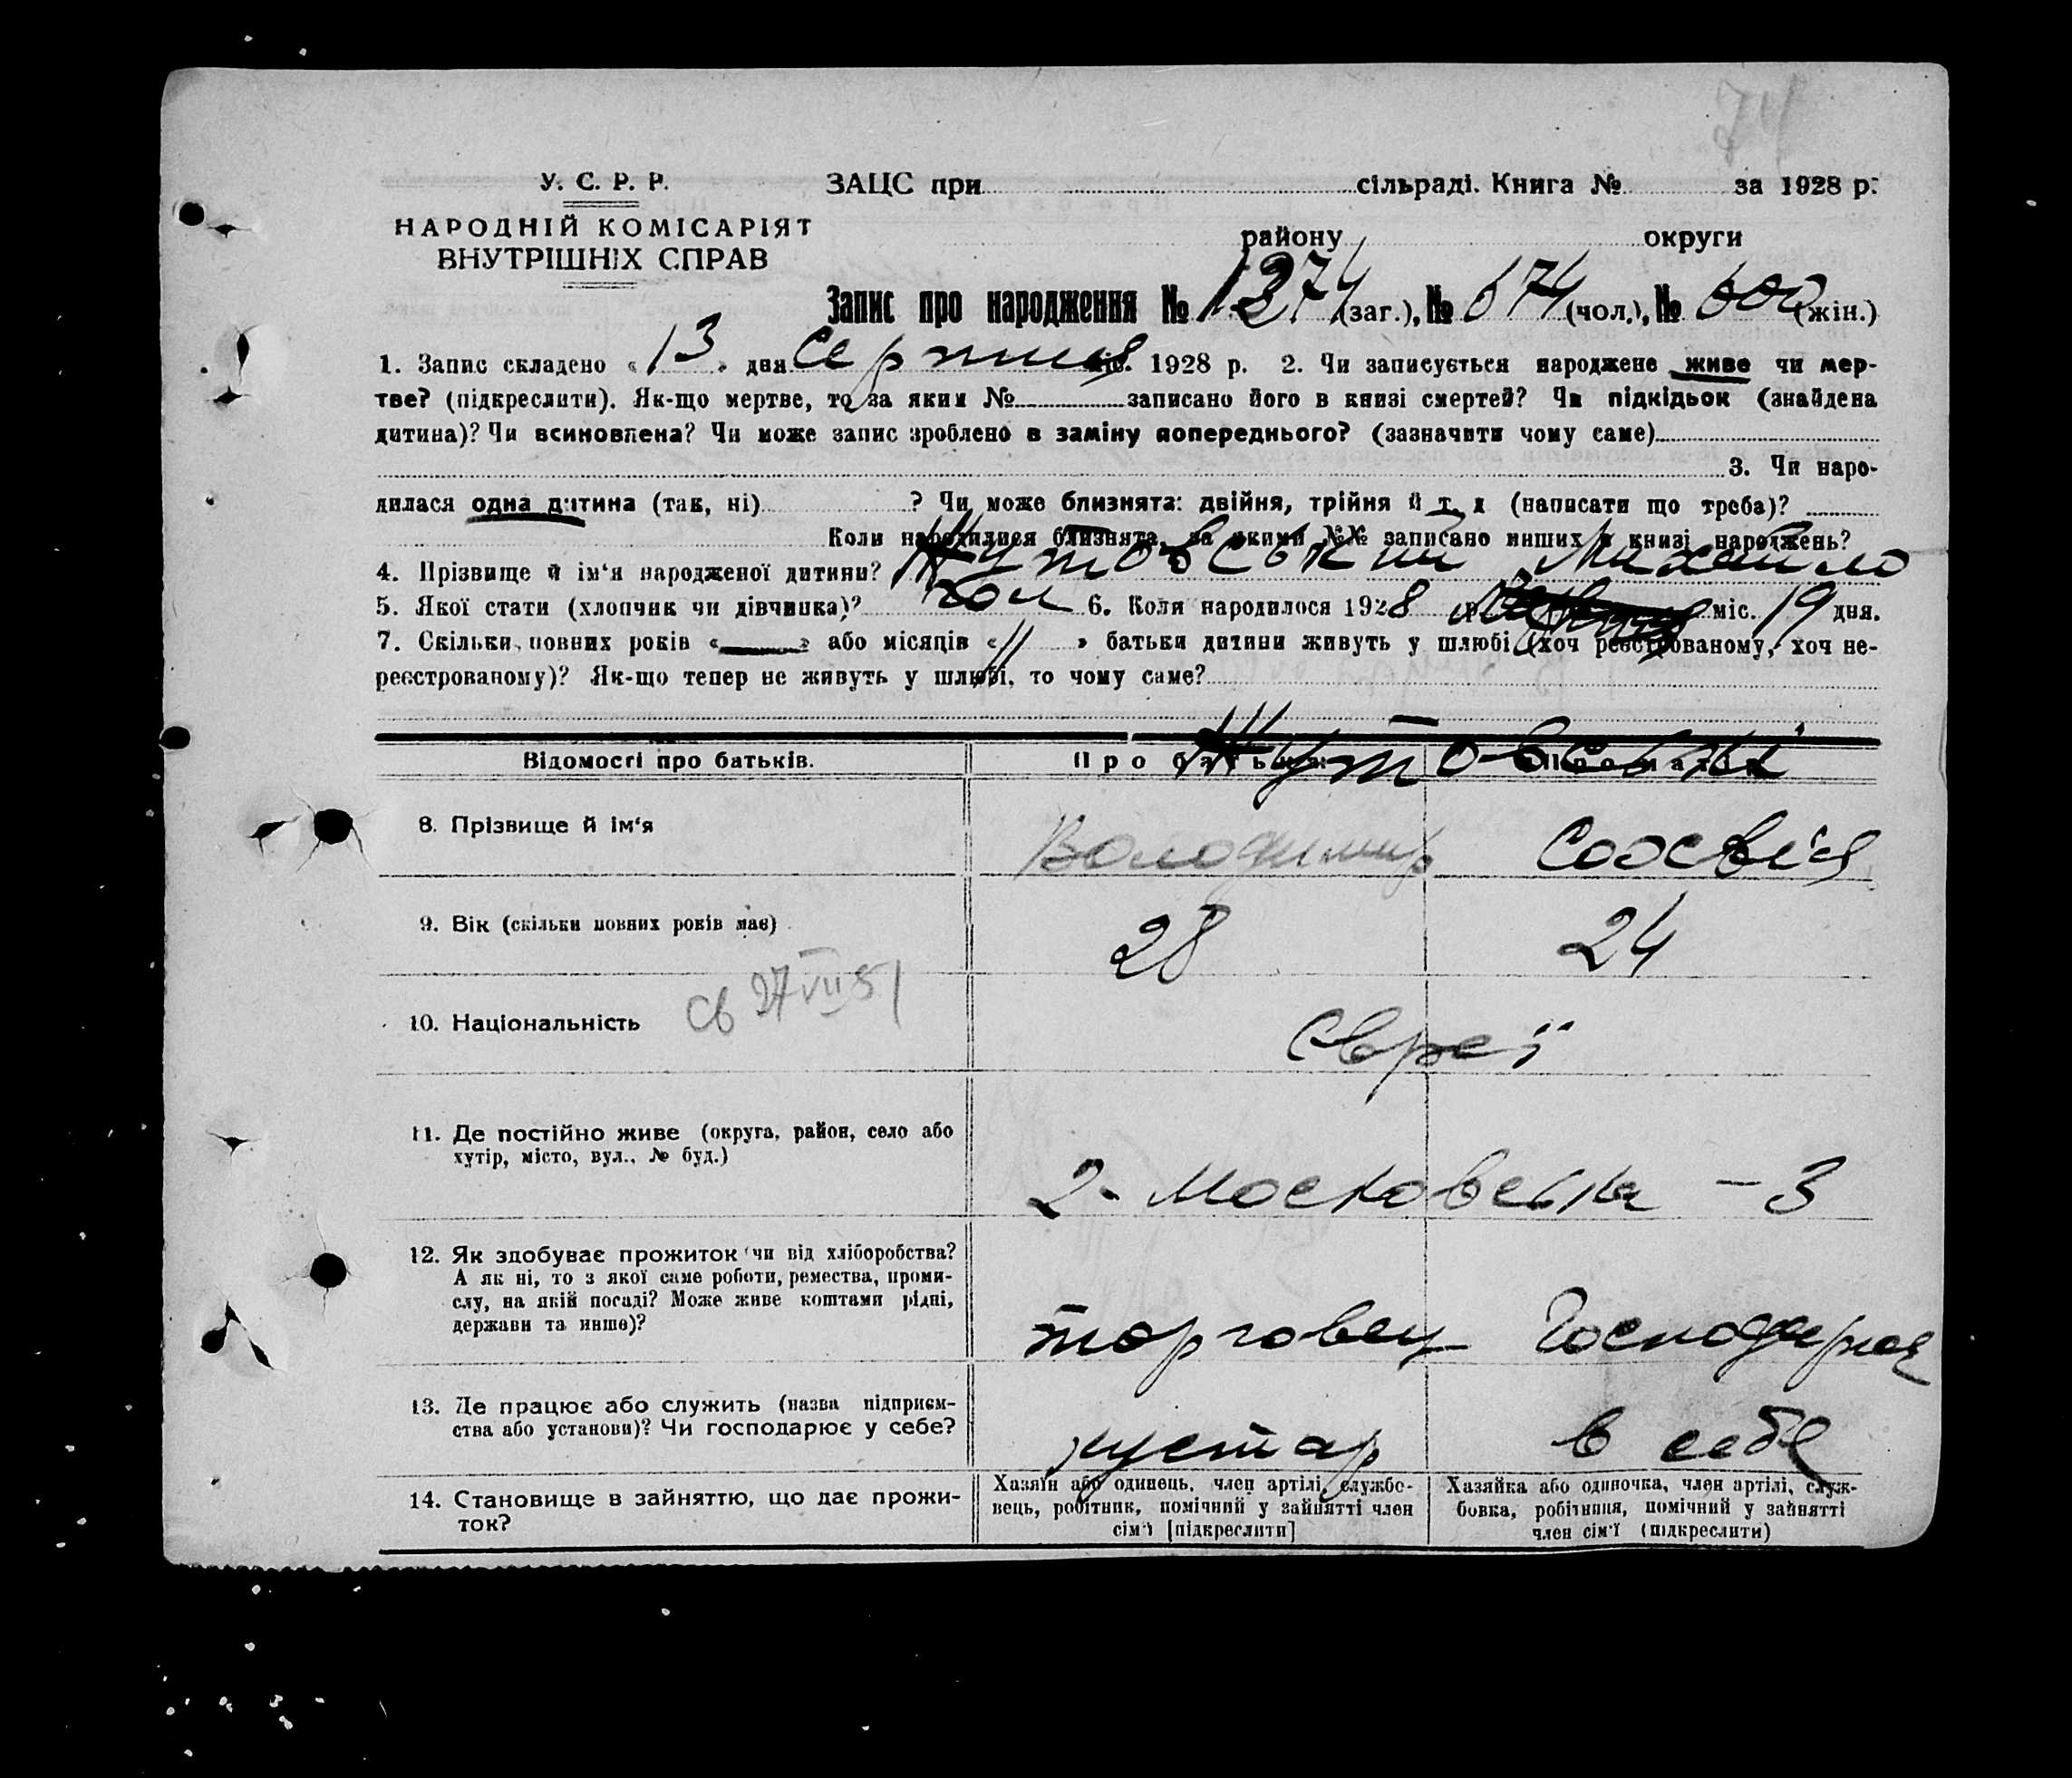 74
У. С. Р. Р.
НАРОДНІЙ КОМІСАРІЯТ
ВНУТРІШНІХ СПРАВ
ЗАЦС при сільраді. Книга № за 1928 р.
району округи
Запис про народження № 1274 (заг.), № 674 (чол.), № 600 (жін.)
1. Запис складено « 13 » дня Серпня міс. 1928 р. 2. Чи записується народжене живе чи мер-
тве? (підкреслити). Як-що мертве, то за яким № записано його в книзі смертей? Чи підкідьок (знайдена
дитина)? Чи всиновлена? Чи може запис зроблено в заміну попереднього? (зазначити чому саме)
3. Чи наро-
дилася одна дитина (так, ні) ? Чи може близнята: двійня, трійня й т. д (написати що треба)?
Коли народилися близнята, за якими №№ записано инших в книзі народжень?
4. Прізвище й ім'я народженої дитини? Шутовський Михайло
5. Якої стати (хлопчик чи дівчинка)? чол 6. Коли народилося 1928 р. міс. 19 дня.
7. Скільки повних років « — » або місяців « 11 » батьки дитини живуть у шлюбі (хоч реєстрованому, хоч не-
реєстрованому)? Як-що тепер не живуть у шлюбі, то чому саме?
Відомості про батьків. Про батька: Про матір:
Шутовські
8. Прізвище й ім'я Володимир
9. Вік (скільки повних років має) 28 24
св 27 VII 51
10. Національність Євреї
11. Де постійно живе (округа, район, село або
хутір, місто, вул., № буд.)
2-Московська – 3
12. Як здобуває прожиток чи від хліборобства?
А як ні, то з якої саме роботи, ремества, проми-
слу, на якій посаді? Може живе коштами рідні,
держави та инше)?
торговец Господарює
13. Де працює або служить (назва підприєм-
ства або установи)? Чи господарює у себе?
кустар в себе
14. Становище в зайняттю, що дає прожи-
ток?
Хазяїн або одинець, член артілі, службо-
вець, робітник, помічний у зайнятті член
сім'ї [підкреслити]
Хазяйка або одиночка, член артілі, служ-
бовка, робітниця, помічний у зайнятті
член сім'ї (підкреслити)